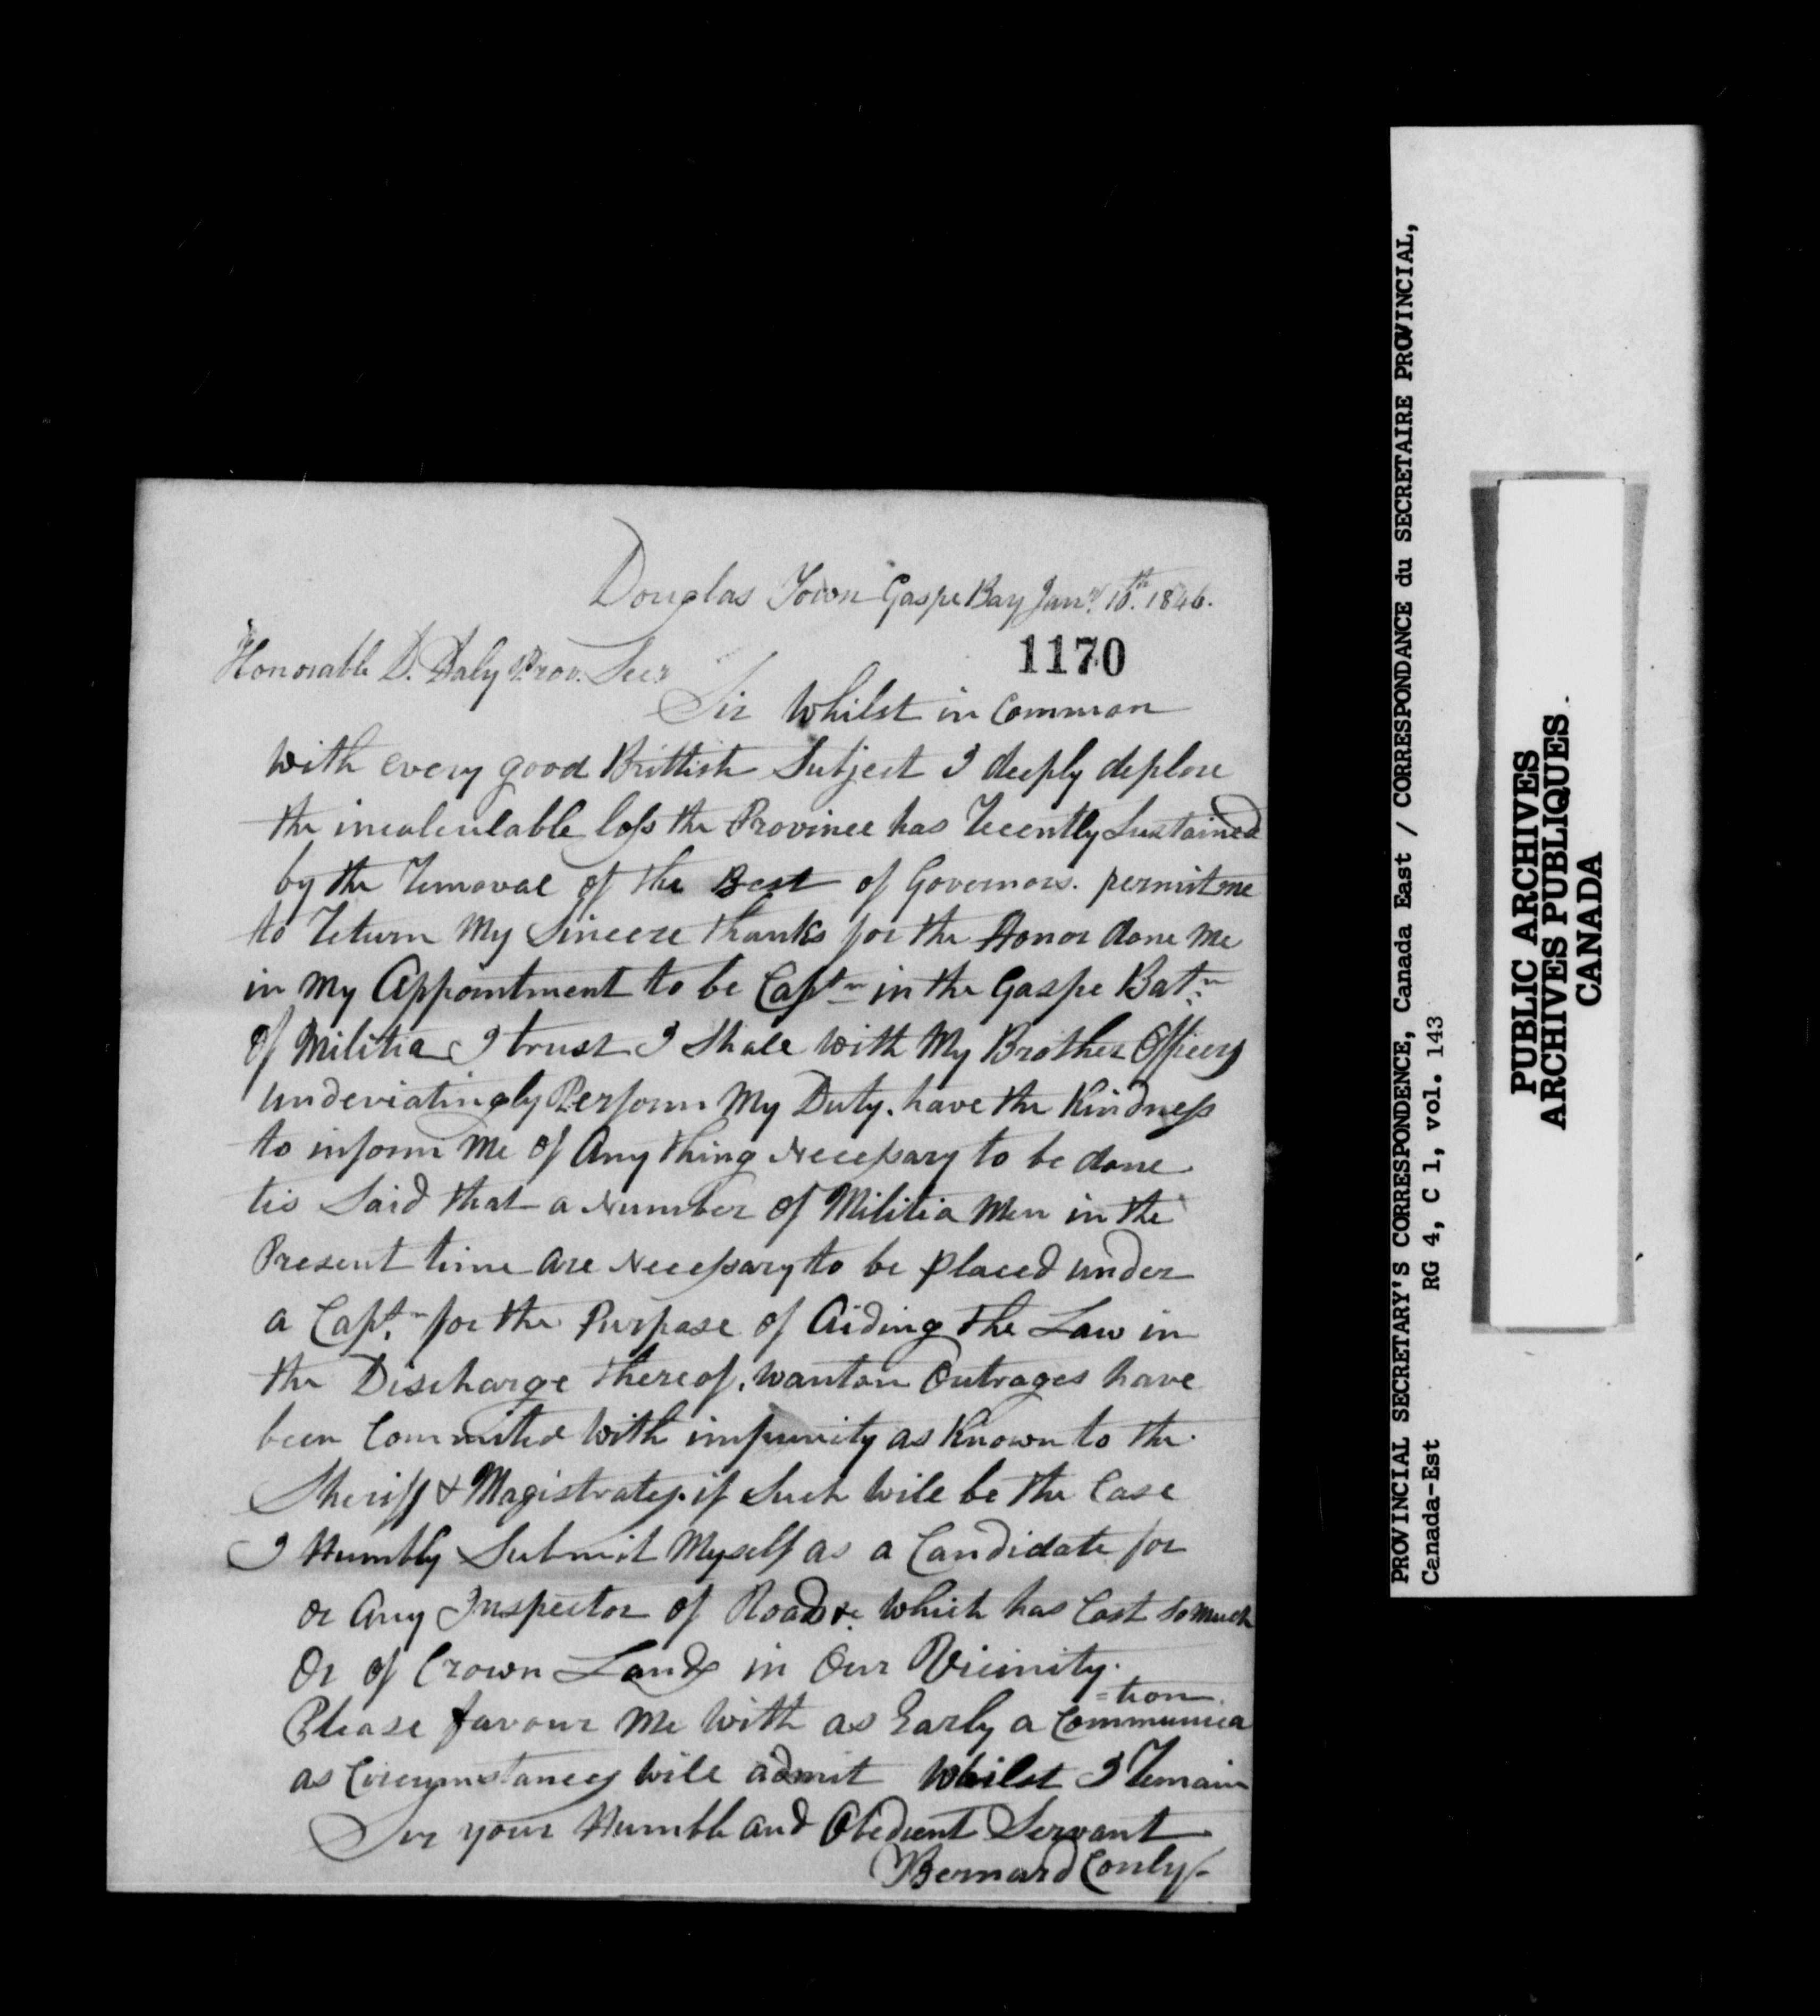 Douglas Town Gaspe Bay Jany. 16th. 1846.
1170
Honorable D. Daly Prov. Secr
Sir Whilst in Common
with every good Brittish Subject I deeply deplore
the incalculable loss the Province has recently Sustained
by the removal of the Best of Governors. permit me
to return My Sincere thanks for the Honor done Me
in My Appointment to be Captn in the Gaspe Batn
Of Militia I trust I Shall with My Brother Officers
undeviatingly Perform My Duty. have the Kindness
to inform Me Of Any thing Necessary to be done
tis Said that a Number Of Militia Men in the
Present time Are Necessary to be placed under
a Captn for the Purpose of Aiding the Law in
the Discharge thereof. wanton Outrages have
been Commited With impunity as Known to the
Sheriff & Magistrates. if Such will be the Case
I Humbly Submit Myself as a Candidate for
or Any Inspector of Roads &c. which has Cost So Much
Or of Crown Lands in Our Vicinity.
Please favour Me With as Early a Communica
=tion.
as Circumstances will admit Whilst I remain
Sir your Humble and Obedient Servant
Bernard Conly
PROVINCIAL SECRETARY'S CORRESPONDENCE, Canada East / CORRESPONDANCE du SECRETAIRE PROVINCIAL,
Canada-Est RG 4, C 1, vol. 143
PUBLIC ARCHIVES
ARCHIVES PUBLIQUES
CANADA